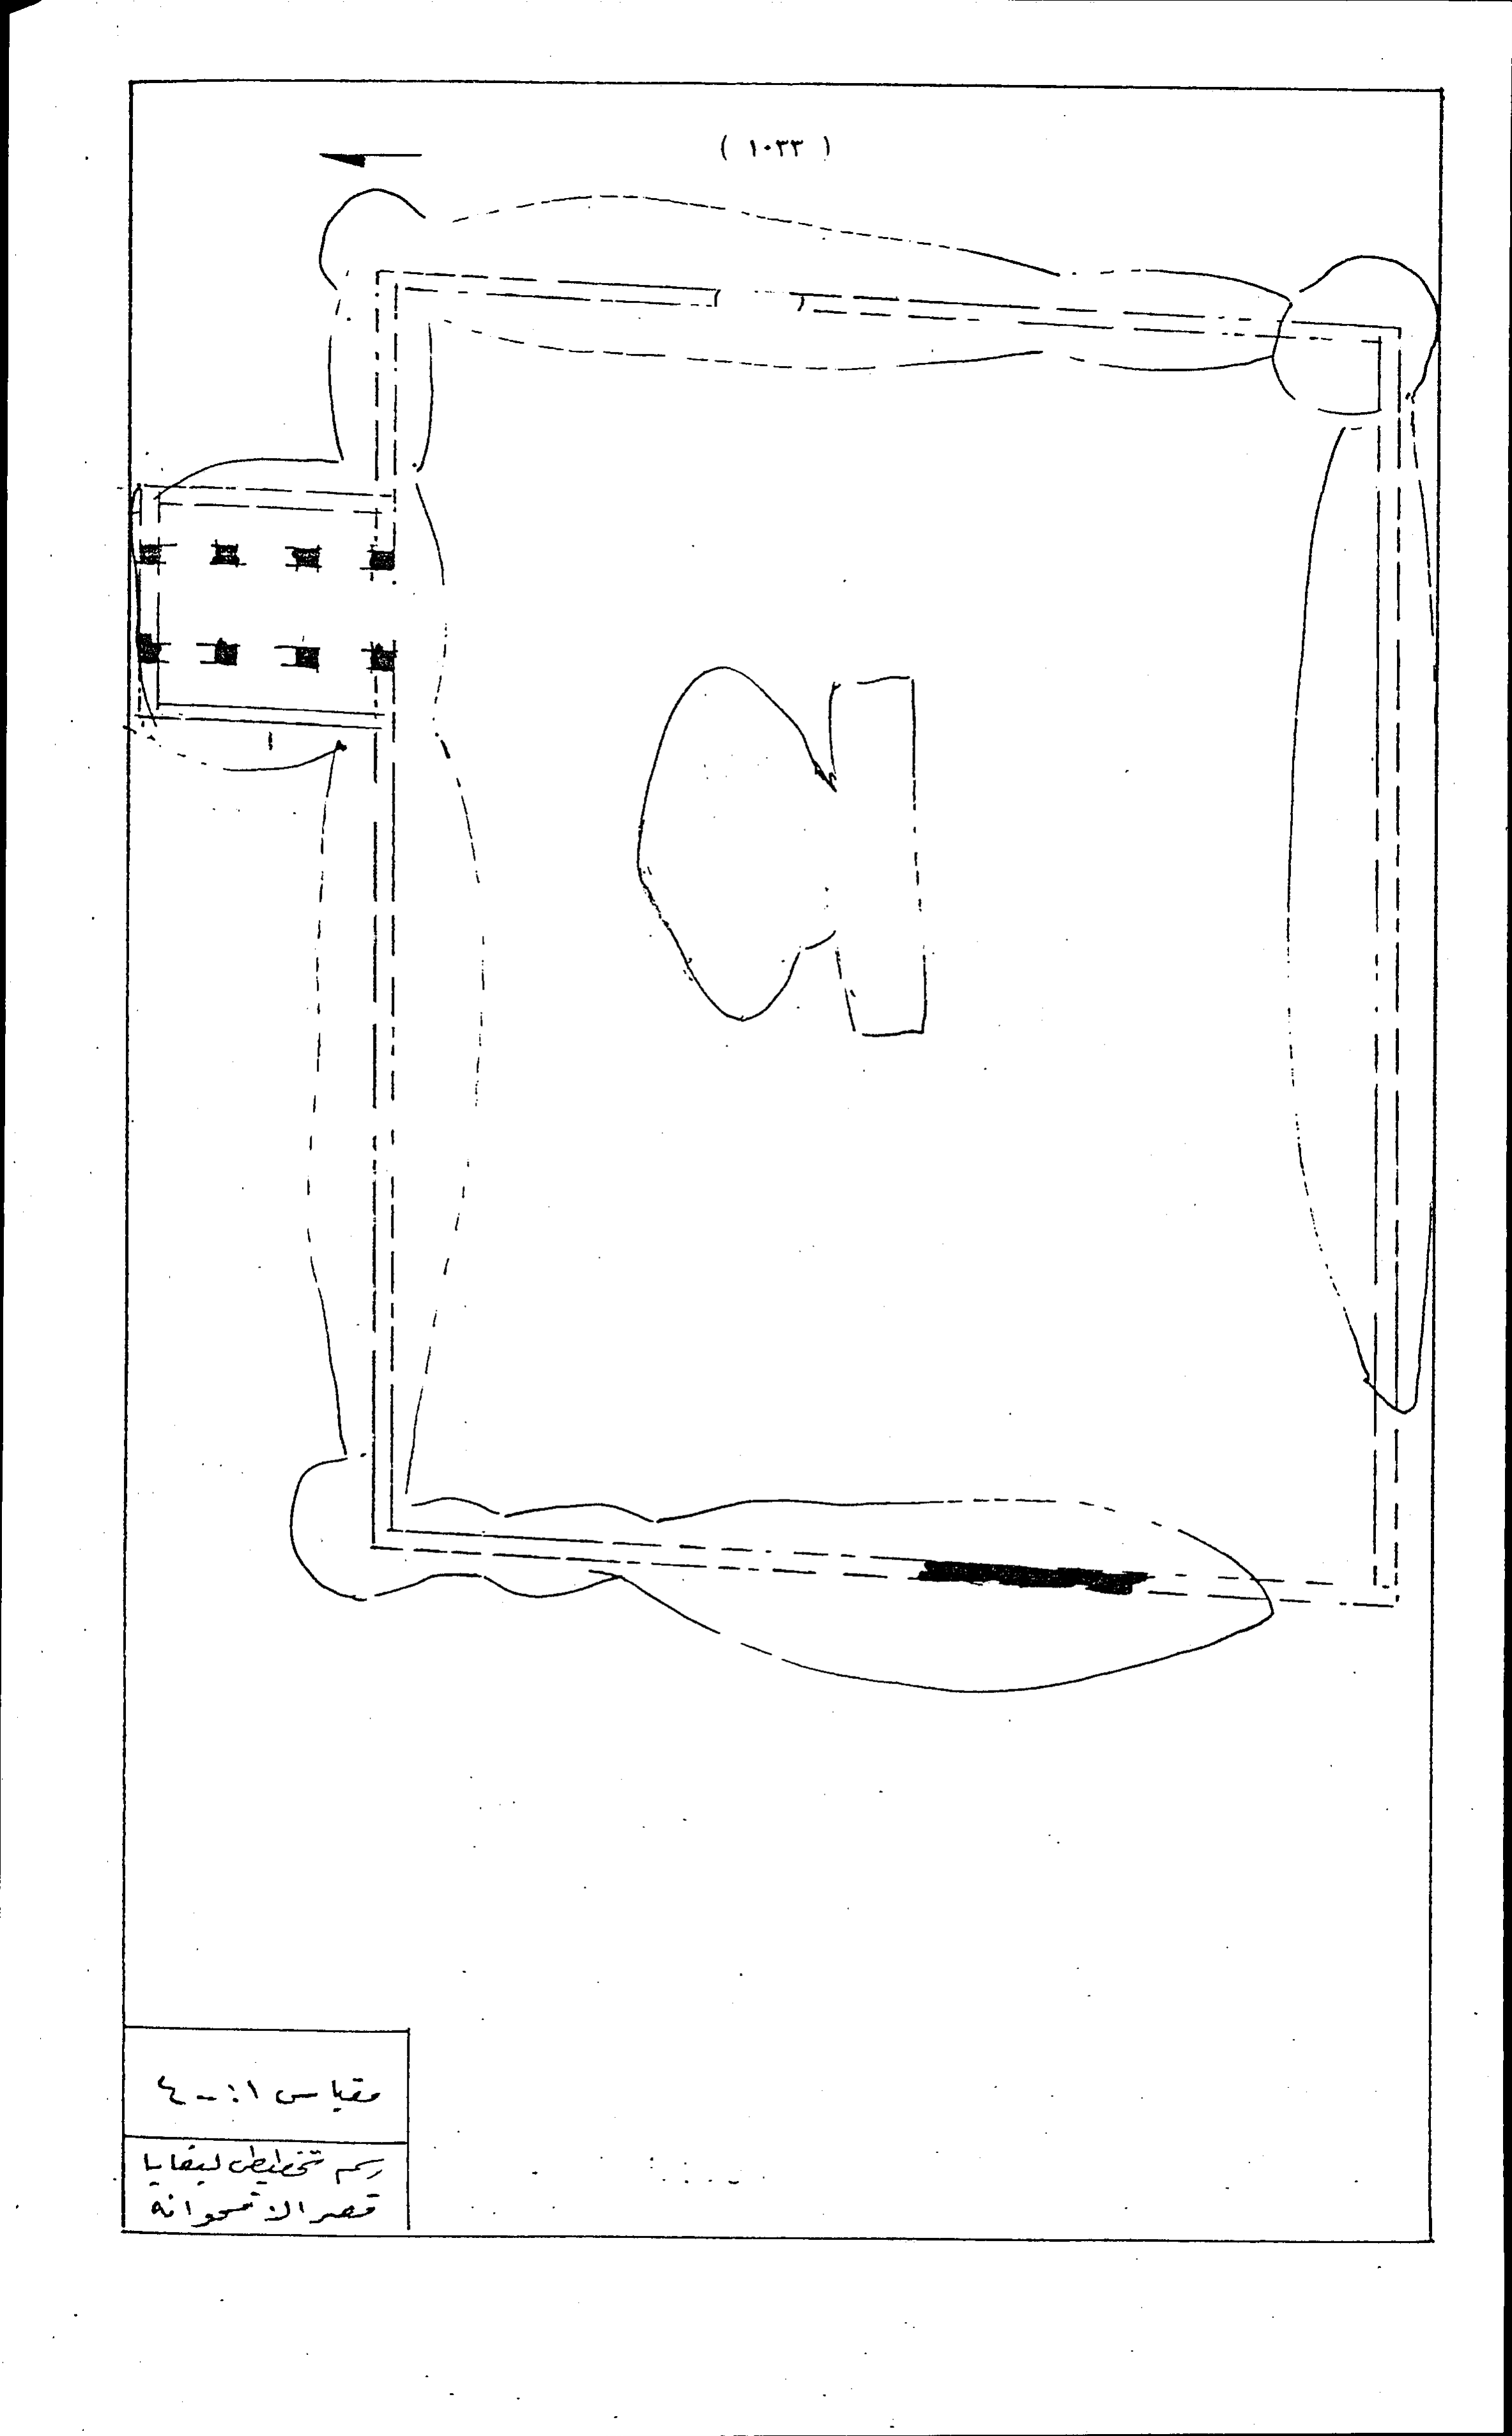 ( ١٠٣٣ )
١
مقياس ١ : ٤٠٠
رسم تخطيطي لبقايا
قصر الاقحوانه